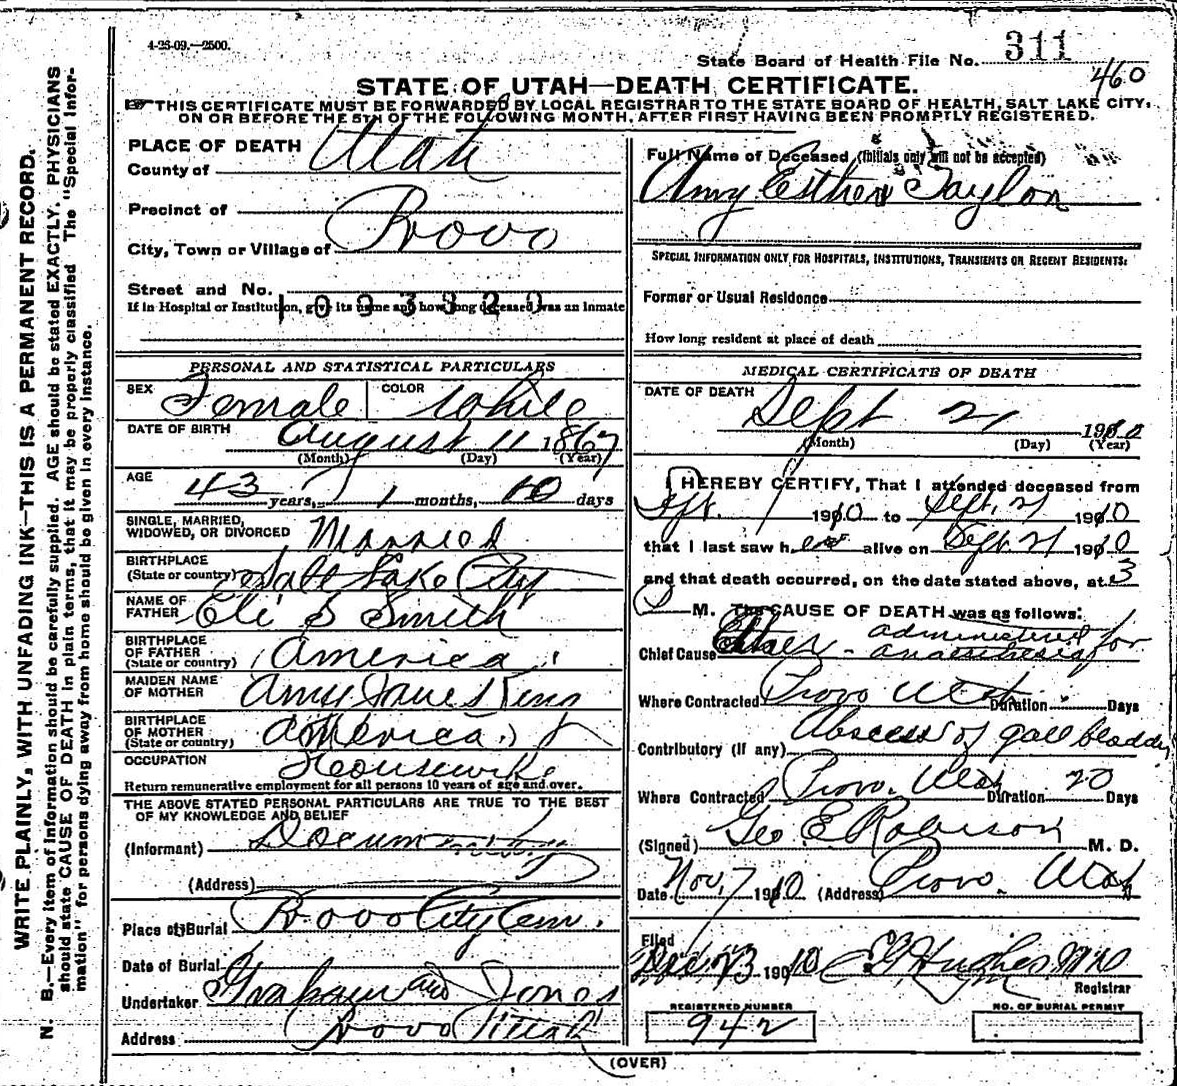 4-25-09.—2500.
State Board of Health File No. 311
460
STATE OF UTAH—DEATH CERTIFICATE.
THIS CERTIFICATE MUST BE FORWARDED BY LOCAL REGISTRAR TO THE STATE BOARD OF HEALTH, SALT LAKE CITY,
ON OR BEFORE THE 5TH OF THE FOLLOWING MONTH, AFTER FIRST HAVING BEEN PROMPTLY REGISTERED.
WRITE PLAINLY, WITH UNFADING INK—THIS IS A PERMANENT RECORD.
N. B.—Every item of information should be carefully supplied. AGE should be stated EXACTLY. PHYSICIANS
should state CAUSE OF DEATH in plain terms, that it may be properly classified The "Special Infor-
mation" for persons dying away from home should be given in every instance.
PLACE OF DEATH
County of Utah
Precinct of
City, Town or Village of Provo
Street and No.
If in Hospital or Institution, give its name and how long deceased was an Inmate
1093320
PERSONAL AND STATISTICAL PARTICULARS
SEX Female COLOR White
DATE OF BIRTH August 11 1867
(Month) (Day) (Year)
AGE 43 years, 1 months, 10 days
SINGLE, MARRIED,
WIDOWED, OR DIVORCED Married
BIRTHPLACE
(State or country) Salt Lake City
NAME OF
FATHER Eli S Smith
BIRTHPLACE
OF FATHER
(State or country) America
MAIDEN NAME
OF MOTHER Amy Jane King
BIRTHPLACE
OF MOTHER
(State or country) America
OCCUPATION Housewife
Return remunerative employment for all persons 10 years of age and over.
THE ABOVE STATED PERSONAL PARTICULARS ARE TRUE TO THE BEST
OF MY KNOWLEDGE AND BELIEF
(Informant)
(Address)
Place of Burial Provo City Cem.
Date of Burial
Undertaker Graham and Jones
Address Provo Utah
Full Name of Deceased (Initials only will not be accepted)
Amy Esther Taylor
SPECIAL INFORMATION ONLY FOR HOSPITALS, INSTITUTIONS, TRANSIENTS OR RECENT RESIDENTS:
Former or Usual Residence
How long resident at place of death
MEDICAL CERTIFICATE OF DEATH
DATE OF DEATH
Sept 21 1910
(Month) (Day) (Year)
I HEREBY CERTIFY, That I attended deceased from
Sept. 1 1910 to Sept. 21 1910
that I last saw her alive on Sept. 21 1910
and that death occurred, on the date stated above, at 3
P M. The CAUSE OF DEATH was as follows:
Chief Cause Ether - administered for
anaesthesia
Where Contracted Provo Utah Duration Days
Contributory (if any) Abscess of gall bladder
Where Contracted Provo. Utah Duration 20 Days
(Signed) Geo E Robison M. D.
Date Nov. 7 1910 (Address) Provo. Utah
Filed
1910 Hughes MD
Registrar
REGISTERED NUMBER
942
NO. OF BURIAL PERMIT
(OVER)